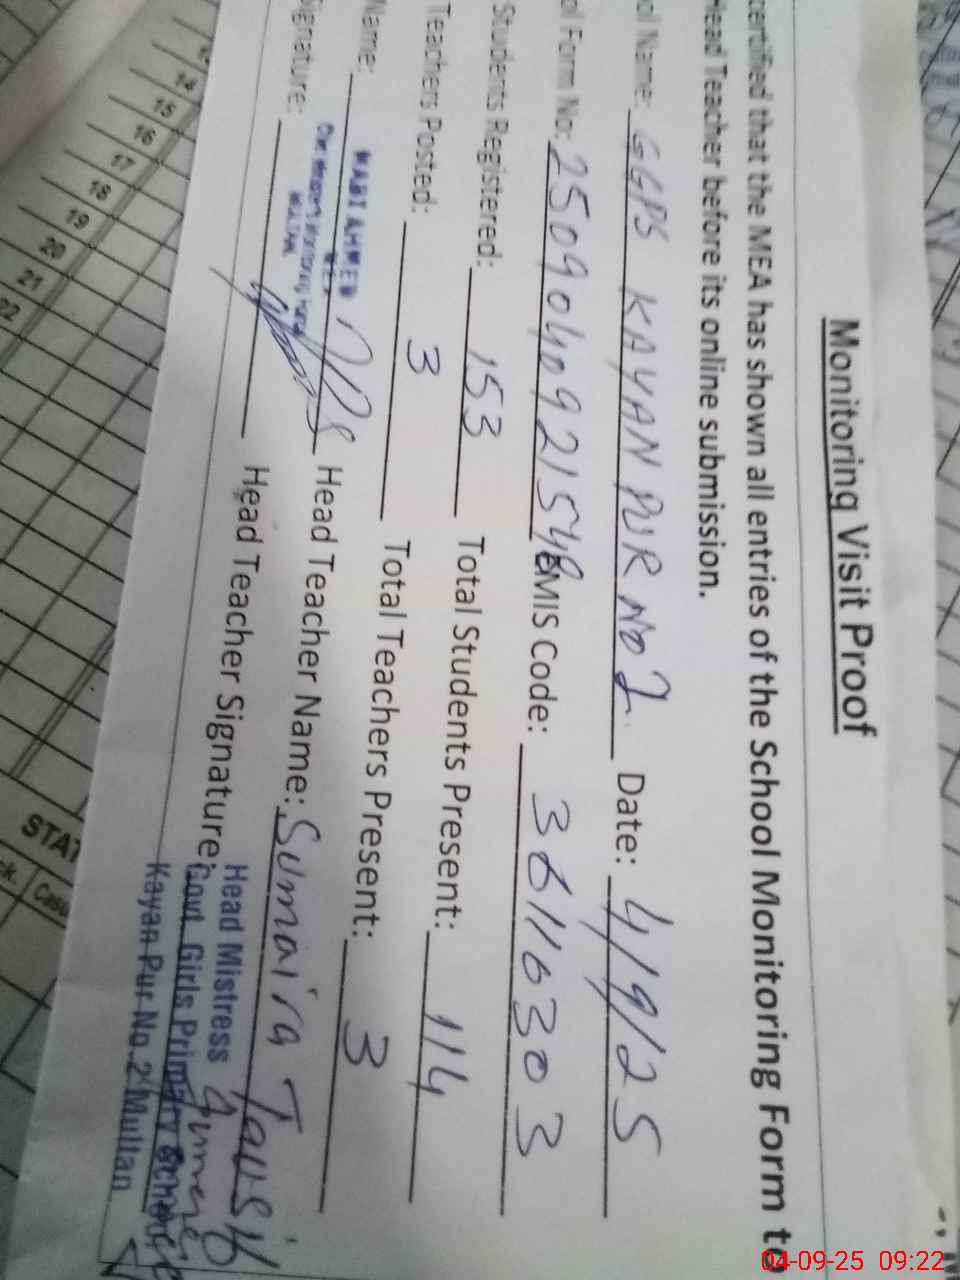 Monitoring Visit Proof
certified that the MEA has shown all entries of the School Monitoring Form to
Head Teacher before its online submission.
ol Name: GGPS KAYAN PUR NO 2 Date: 4/9/25
ol Form No: 2509040921548 EMIS Code: 36111630 3
Students Registered: 153 Total Students Present: 114
Teachers Posted: 3 Total Teachers Present: 3
Name: Head Teacher Name: Sumaira Tausif
Signature: Head Teacher Signature:
MULTAN
Head Mistress
Govt. Girls Primary School
Kayan Pur No.2 Multan
13
14
15
16
17
18
19
20
21
22
STAT
Casu
04-09-25 09:22